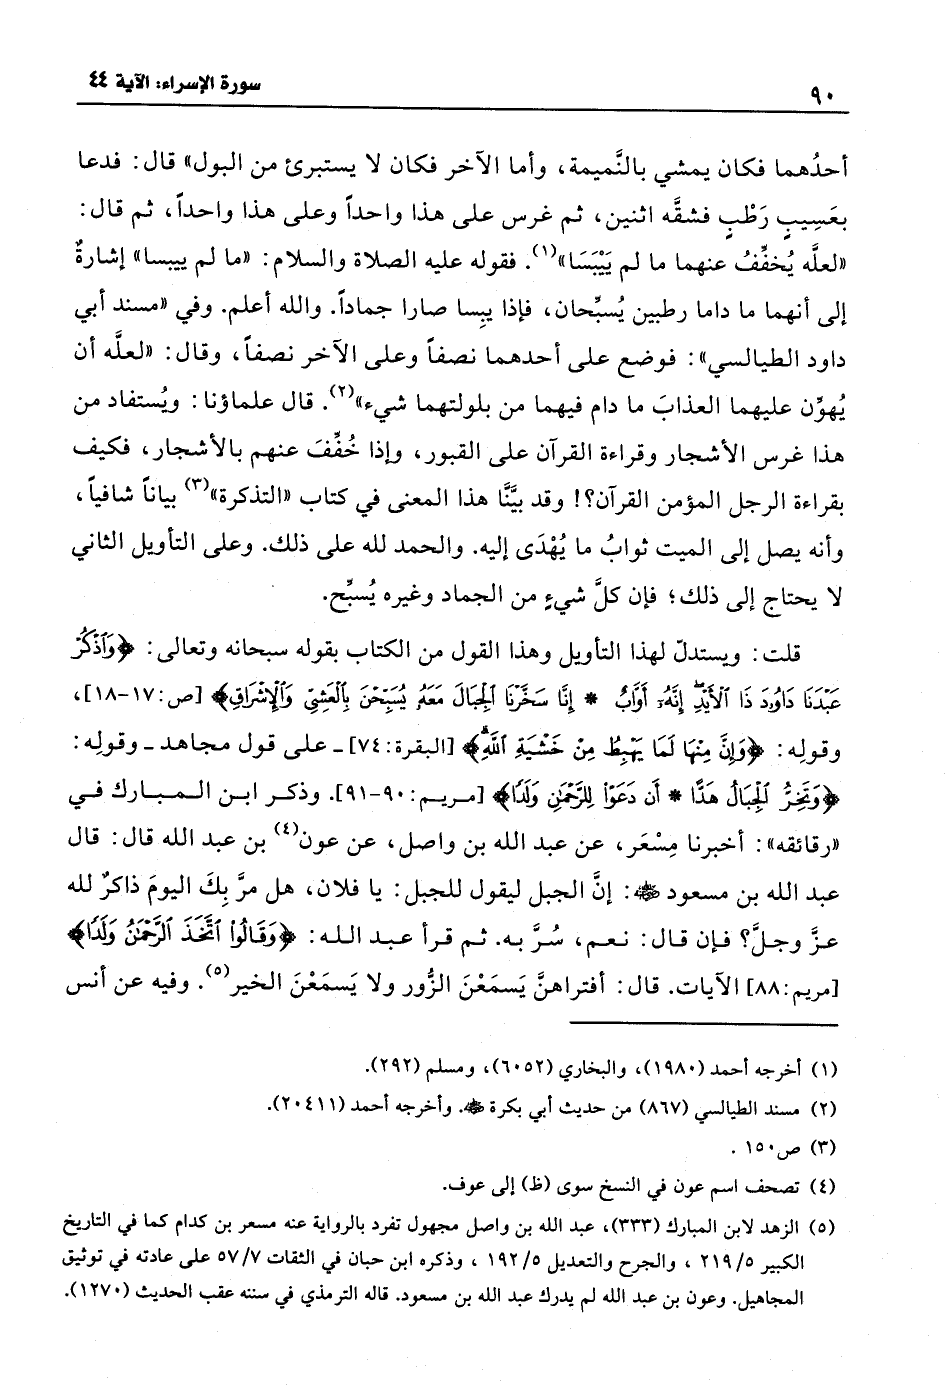 سورة الإسراء: الآية ٤٤
٩٠
أحدُهما فكان يمشي بالنَّميمة، وأما الآخر فكان لا يستبرئ من البول» قال: فدعا
بعَسِيبٍ رَطْبٍ فشقَّه اثنين، ثم غرس على هذا واحداً وعلى هذا واحداً، ثم قال:
«لعلَّه يُخفِّفُ عنهما ما لم يَيْبَسَا»(١). فقوله عليه الصلاة والسلام: «ما لم ييبسا» إشارةٌ
إلى أنهما ما داما رطبين يُسبِّحان، فإذا يبِسا صارا جماداً. والله أعلم. وفي «مسند أبي
داود الطيالسي»: فوضع على أحدهما نصفاً وعلى الآخر نصفاً، وقال: «لعلَّه أن
يُهوِّن عليهما العذابَ ما دام فيهما من بلولتهما شيء»(٢). قال علماؤنا: ويُستفاد من
هذا غرس الأشجار وقراءة القرآن على القبور، وإذا خُفِّفَ عنهم بالأشجار، فكيف
بقراءة الرجل المؤمن القرآن؟! وقد بيَّنَّا هذا المعنى في كتاب «التذكرة»(٣) بياناً شافياً،
وأنه يصل إلى الميت ثوابُ ما يُهْدَى إليه. والحمد لله على ذلك. وعلى التأويل الثاني
لا يحتاج إلى ذلك؛ فإن كلَّ شيءٍ من الجماد وغيره يُسبِّح.
قلت: ويستدلّ لهذا التأويل وهذا القول من الكتاب بقوله سبحانه وتعالى: ﴿وَٱذْكُرْ
عَبْدَنَا دَاوُۥدَ ذَا ٱلْأَيْدِۖ إِنَّهُۥٓ أَوَّابٌ * إِنَّا سَخَّرْنَا ٱلْجِبَالَ مَعَهُۥ يُسَبِّحْنَ بِٱلْعَشِىِّ وَٱلْإِشْرَاقِ﴾ [ص:١٧-١٨]،
وقوله: ﴿وَإِنَّ مِنْهَا لَمَا يَهْبِطُ مِنْ خَشْيَةِ ٱللَّهِۗ﴾ [البقرة:٧٤] ـ على قول مجاهد ـ وقولِه:
﴿وَتَخِرُّ ٱلْجِبَالُ هَدًّا * أَن دَعَوْا۟ لِلرَّحْمَٰنِ وَلَدًا﴾ [مريم:٩٠-٩١]. وذكر ابن المبارك في
«رقائقه»: أخبرنا مِسْعَر، عن عبد الله بن واصل، عن عون(٤) بن عبد الله قال: قال
عبد الله بن مسعود ﵁: إنَّ الجبل ليقول للجبل: يا فلان، هل مرَّ بِكَ اليومَ ذاكرٌ لله
عزَّ وجلَّ؟ فإن قال: نعم، سُرَّ به. ثم قرأ عبد الله: ﴿وَقَالُوا۟ ٱتَّخَذَ ٱلرَّحْمَٰنُ وَلَدًا﴾
[مريم:٨٨] الآيات. قال: أفتراهنَّ يَسمَعْنَ الزُّور ولا يَسمَعْنَ الخير(٥). وفيه عن أنس
(١) أخرجه أحمد (١٩٨٠)، والبخاري (٦٠٥٢)، ومسلم (٢٩٢).
(٢) مسند الطيالسي (٨٦٧) من حديث أبي بكرة ﵁. وأخرجه أحمد (٢٠٤١١).
(٣) ص١٥٠ .
(٤) تصحف اسم عون في النسخ سوى (ظ) إلى عوف.
(٥) الزهد لابن المبارك (٣٣٣)، عبد الله بن واصل مجهول تفرد بالرواية عنه مسعر بن كدام كما في التاريخ
الكبير ٢١٩/٥ ، والجرح والتعديل ١٩٢/٥ ، وذكره ابن حبان في الثقات ٥٧/٧ على عادته في توثيق
المجاهيل. وعون بن عبد الله لم يدرك عبد الله بن مسعود. قاله الترمذي في سننه عقب الحديث (١٢٧٠).